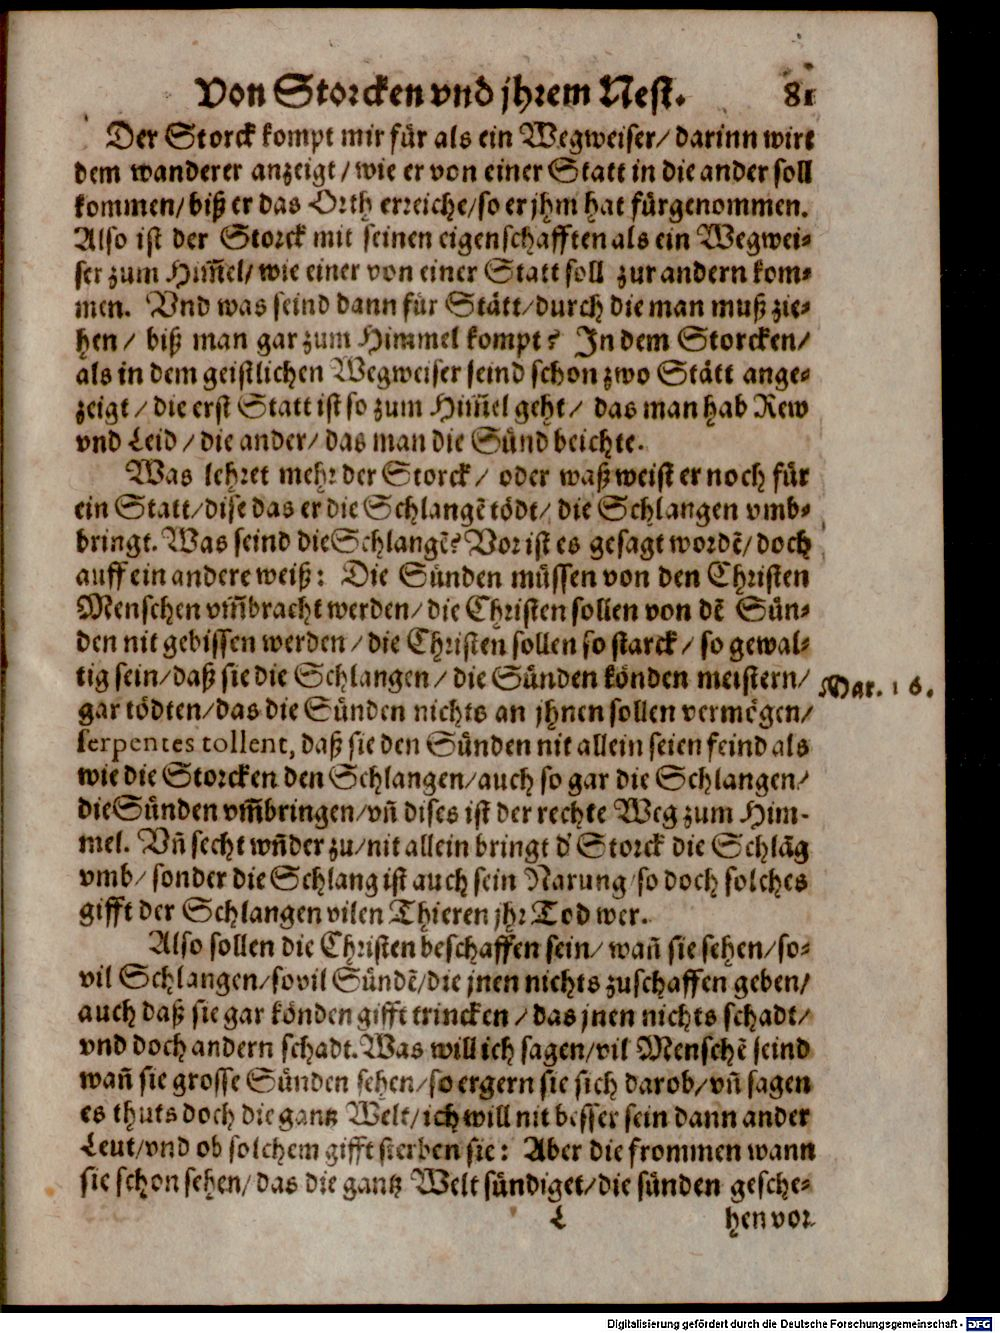 Von Storcken vnd jhrem Nest. 81
Der Storck kompt mir für als ein Wegweiser/ darinn wirt
dem wanderer anzeigt/ wie er von einer Statt in die ander soll
kommen/ biß er das Orth erreiche/ so er jhm hat fürgenommen.
Also ist der Storck mit seinen eigenschafften als ein Wegwei-
ser zum Him̃el/ wie einer von einer Statt soll zur andern kom-
men. Vnd was seind dann für Stätt/ durch die man muß zie-
hen/ biß man gar zum Himmel kompt? In dem Storcken/
als in dem geistlichen Wegweiser seind schon zwo Stätt ange-
zeigt/ die erst Statt ist so zum Him̃el geht/ das man hab Rew
vnd Leid/ die ander/ das man die Sünd beichte.
Was lehret mehr der Storck/ oder waß weist er noch für
ein Statt/ dise das er die Schlangẽ tödt/ die Schlangen vmb-
bringt. Was seind die Schlangẽ? Vor ist es gesagt wordẽ/ doch
auff ein andere weiß: Die Sünden müssen von den Christen
Menschen vm̃bracht werden/ die Christen sollen von dẽ Sün-
den nit gebissen werden/ die Christen sollen so starck/ so gewal-
tig sein/ daß sie die Schlangen/ die Sünden könden meistern/
Mar. 16.
gar tödten/ das die Sünden nichts an jhnen sollen vermögen/
serpentes tollent, daß sie den Sünden nit allein seien feind als
wie die Storcken den Schlangen/ auch so gar die Schlangen/
die Sünden vm̃bringen/ vñ dises ist der rechte Weg zum Him-
mel. Vñ secht wñder zu/ nit allein bringt d' Storck die Schlãg
vmb/ sonder die Schlang ist auch sein Narung/ so doch solches
gifft der Schlangen vilen Thieren jhr Tod wer.
Also sollen die Christen beschaffen sein/ wañ sie sehen/ so-
vil Schlangen/ sovil Sündẽ/ die jnen nichts zuschaffen geben/
auch daß sie gar könden gifft trincken/ das jnen nichts schadt/
vnd doch andern schadt. Was will ich sagen/ vil Menschẽ seind
wañ sie grosse Sünden sehen/ so ergern sie sich darob/ vñ sagen
es thuts doch die gantz Welt/ ich will nit besser sein dann ander
Leut/ vnd ob solchem gifft sterben sie: Aber die frommen wann
sie schon sehen/ das die gantz Welt sündiget/ die sünden gesche-
L hen vor
Digitalisierung gefördert durch die Deutsche Forschungsgemeinschaft - DFG